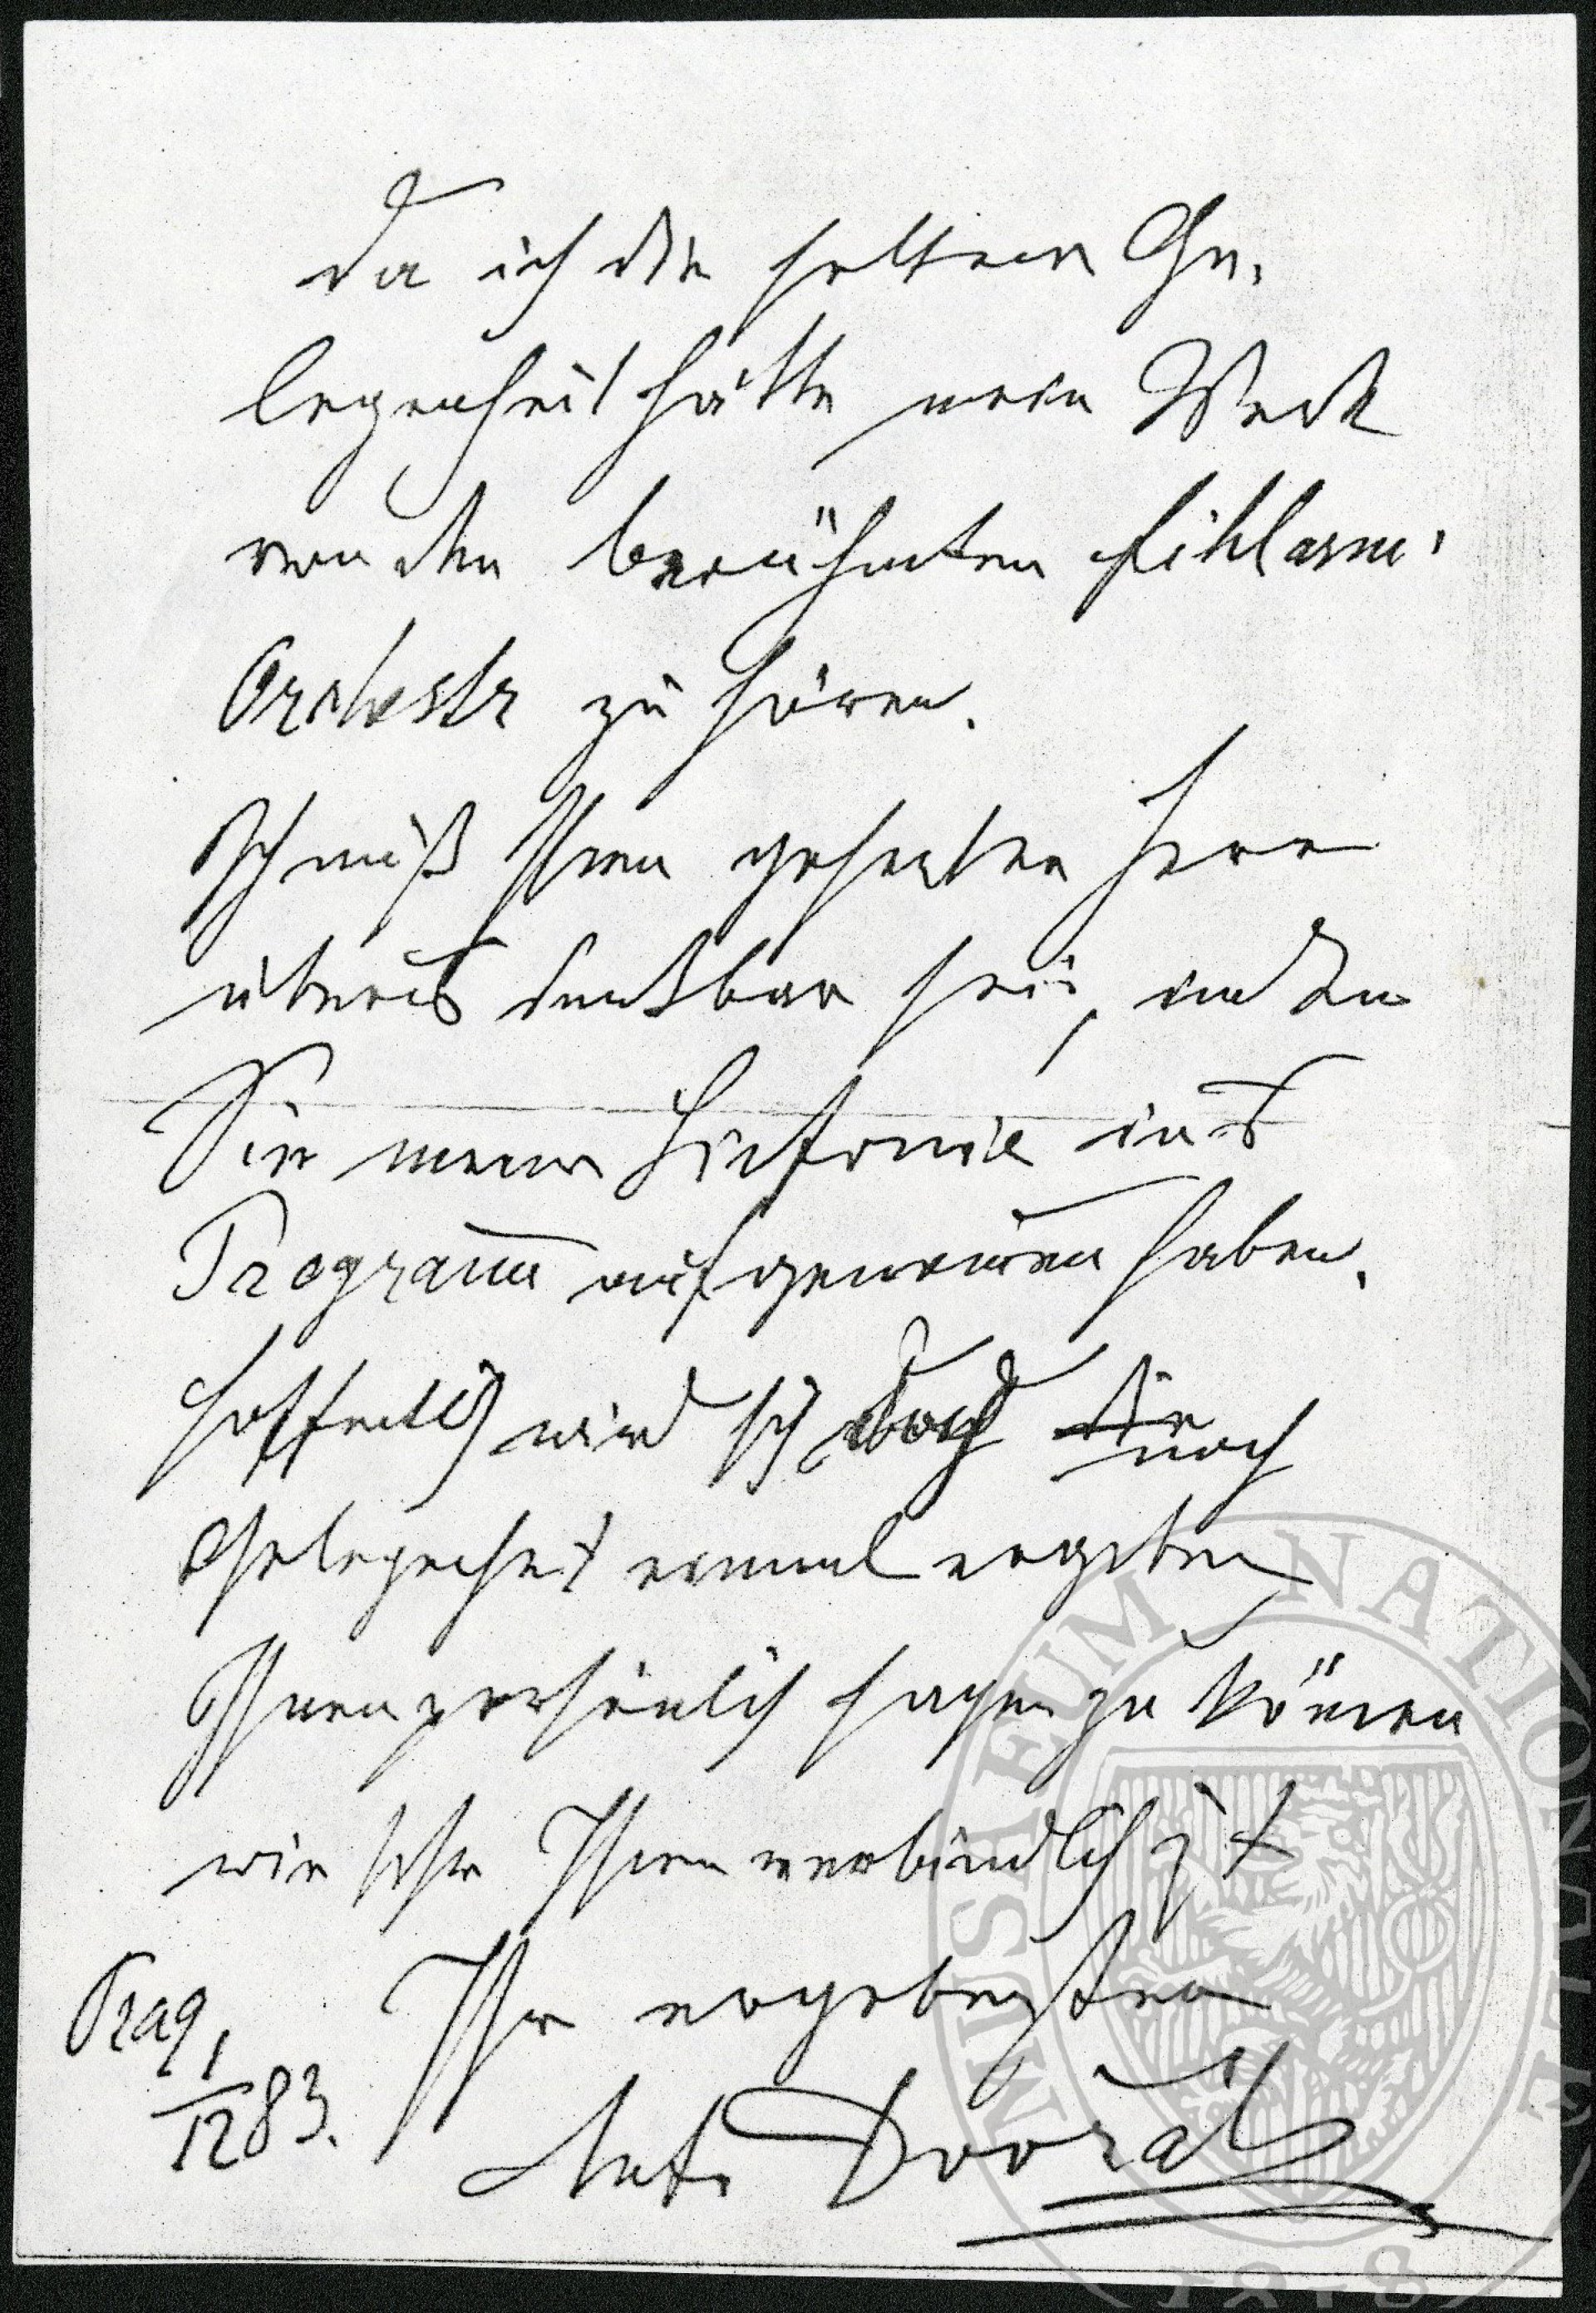 da ich die seltene Ge-
legenheit hätte mein Werk
von dem berühmten filharm.
Orchestr zu hören.
Ich muß Ihnen geehrter Herr
überaus dankbar sein, indem
Sie meine Sinfonie ins
Program̅ aufgenom̅en haben.
Hoffentlich wird sich doch die
noch
Gelegenheit einmal ergeben
Ihnen persönlich sagen zu kön̅en
wie sehr Ihnen verbindlich ist
Ihr ergebenster
Prag,
/12 83.
Ant. Dvořák
MUSEUM NATIONALE
1818